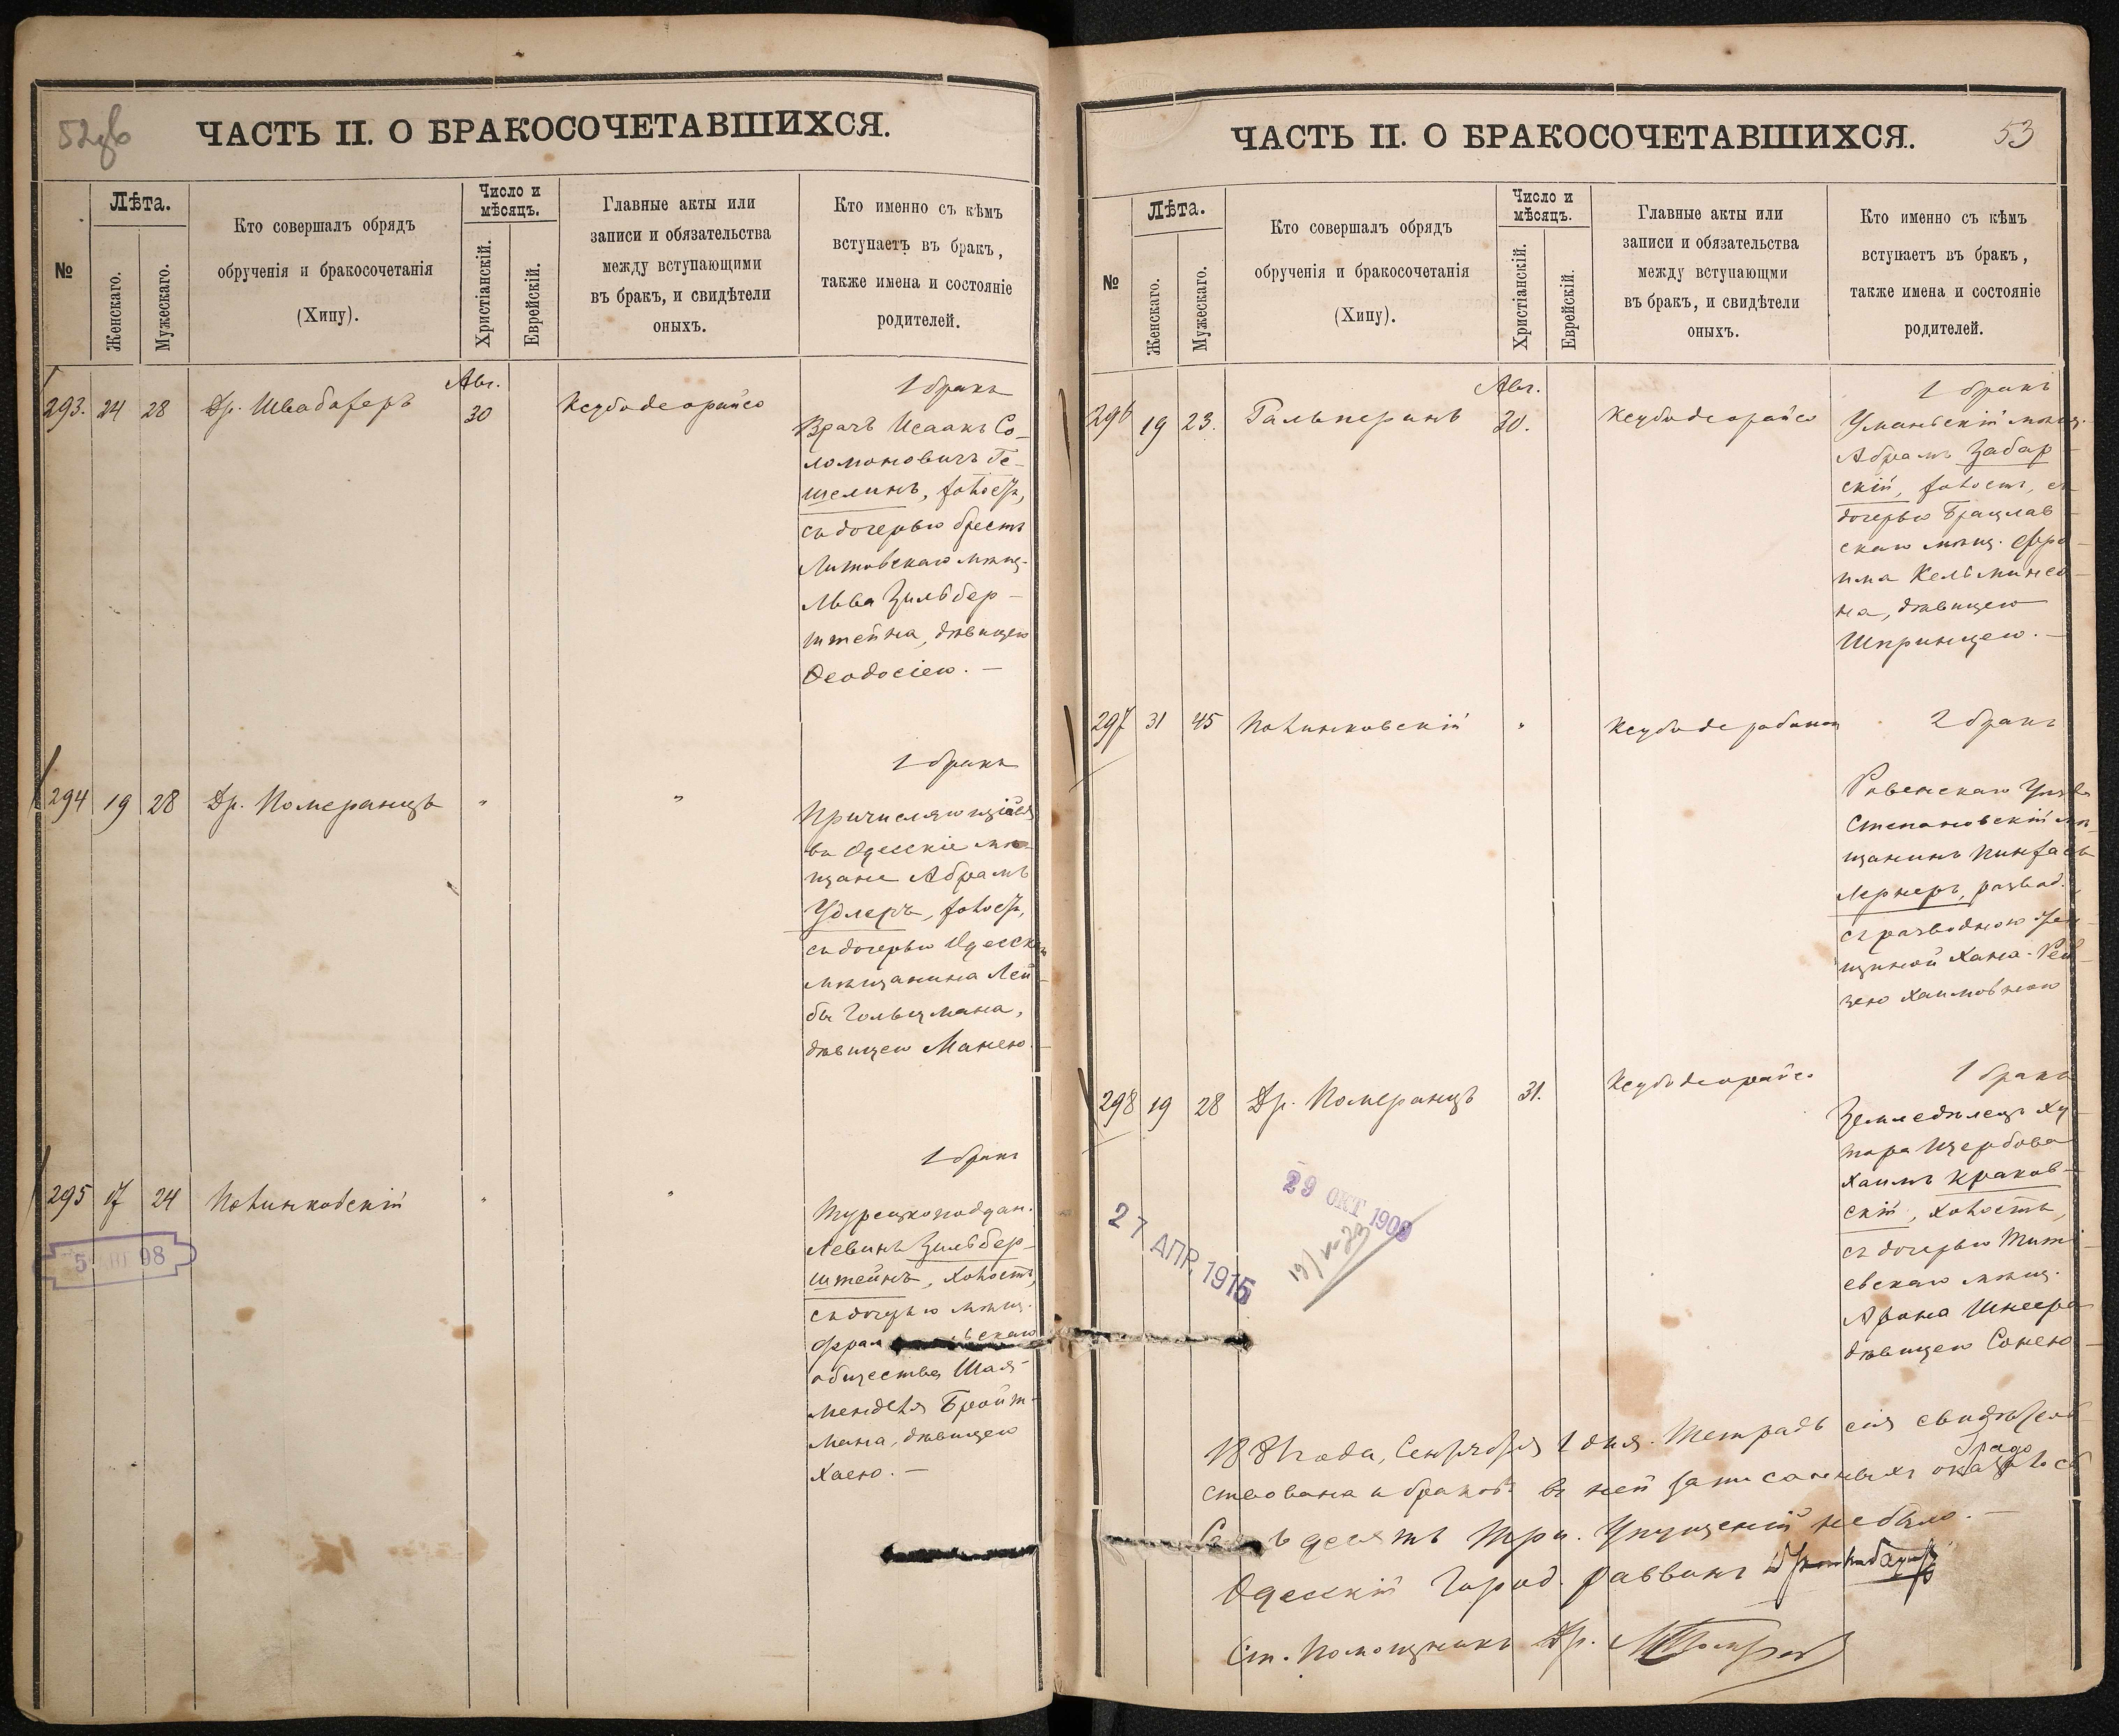 52об
ЧАСТЬ II. О БРАКОСОЧЕТАВШИХСЯ.
№
Лѣта.
Женскаго.
Мужескаго.
Кто совершалъ обрядъ
обрученія и бракосочетанія
(Хипу).
Число и
мѣсяцъ.
Христіанскій.
Еврейскій.
Главные акты или
записи и обязательства
между вступающими
въ бракъ, и свидѣтели
оныхъ.
Кто именно съ кѣмъ
вступаетъ въ бракъ,
также имена и состояніе
родителей.
293. 24 28 Др. Швабахеръ Авг. 30 Ксубодеорайсо
1 бракъ
Врачъ Исаакъ Со-
ломоновичъ Ге-
шелинъ, холост,
съ дочерью Брестъ
Литовскаго мѣщ.
Льва Зильбер-
штейна, дѣвицею
Ѳеодосіею. —
294 19 28 Др. Померанцъ " "
1 бракъ
Причисляющійся
въ Одесскіе мѣ-
щане Абрамъ
Удлеръ, холост,
съ дочерью Одесск
мѣщанина Лей-
бы Гольцмана,
дѣвицею Манею. —
295 17 24 Полинковскій " "
1 бракъ
Турецкоподдан.
Левинъ Зильбер-
штейнъ, холостъ,
съ дочерью мѣщ.
общества Шая-
Менделя Бройт-
мана, дѣвицею
Хаею. —
98
53
ЧАСТЬ II. О БРАКОСОЧЕТАВШИХСЯ.
№
Лѣта.
Женскаго.
Мужескаго.
Кто совершалъ обрядъ
обрученія и бракосочетанія
(Хипу).
Число и
мѣсяцъ.
Христіанскій.
Еврейскій.
Главные акты или
записи и обязательства
между вступающми
въ бракъ, и свидѣтели
оныхъ.
Кто именно съ кѣмъ
вступаетъ въ бракъ,
также имена и состояніе
родителей.
296 19 23. Гальперинъ Авг. 30. Ксубодеорайсо
1 бракъ
Уманьскій мѣщ.
Абрамъ Забар-
скій, холост, съ
дочерью Брацлав-
скаго мѣщ. Ефро-
има Кельминсо-
на, дѣвицею
Шпринцею. —
297 31 45 Полинковскій " Ксубодерабонон
2 бракъ
Ровенскаго Уѣзда
Степановскій мѣ-
щанинъ Пинхасъ
Лернеръ, развод.,
съ разводною жен-
щиной Хана-Рей-
зею Хаимовною
298 19 28 Др. Померанцъ 31. Ксубодеорайсо
1 бракъ
Земледѣлецъ Ху-
тора Щербова
Хаимъ Краков-
скій, холостъ,
съ дочерью Тити-
евскаго мѣщ.
Арона Шнеера
дѣвицею Сонею —
29 ОКТ 1909
27 АПР. 1915
года, Сентября 1 дня. Тетрадь сія свидѣтель-
ствована и браковъ въ ней записанныхъ оказалось
десять три. Упущеній не было. —
Одесскій Город. раввинъ
Ст. Помощникъ Др.